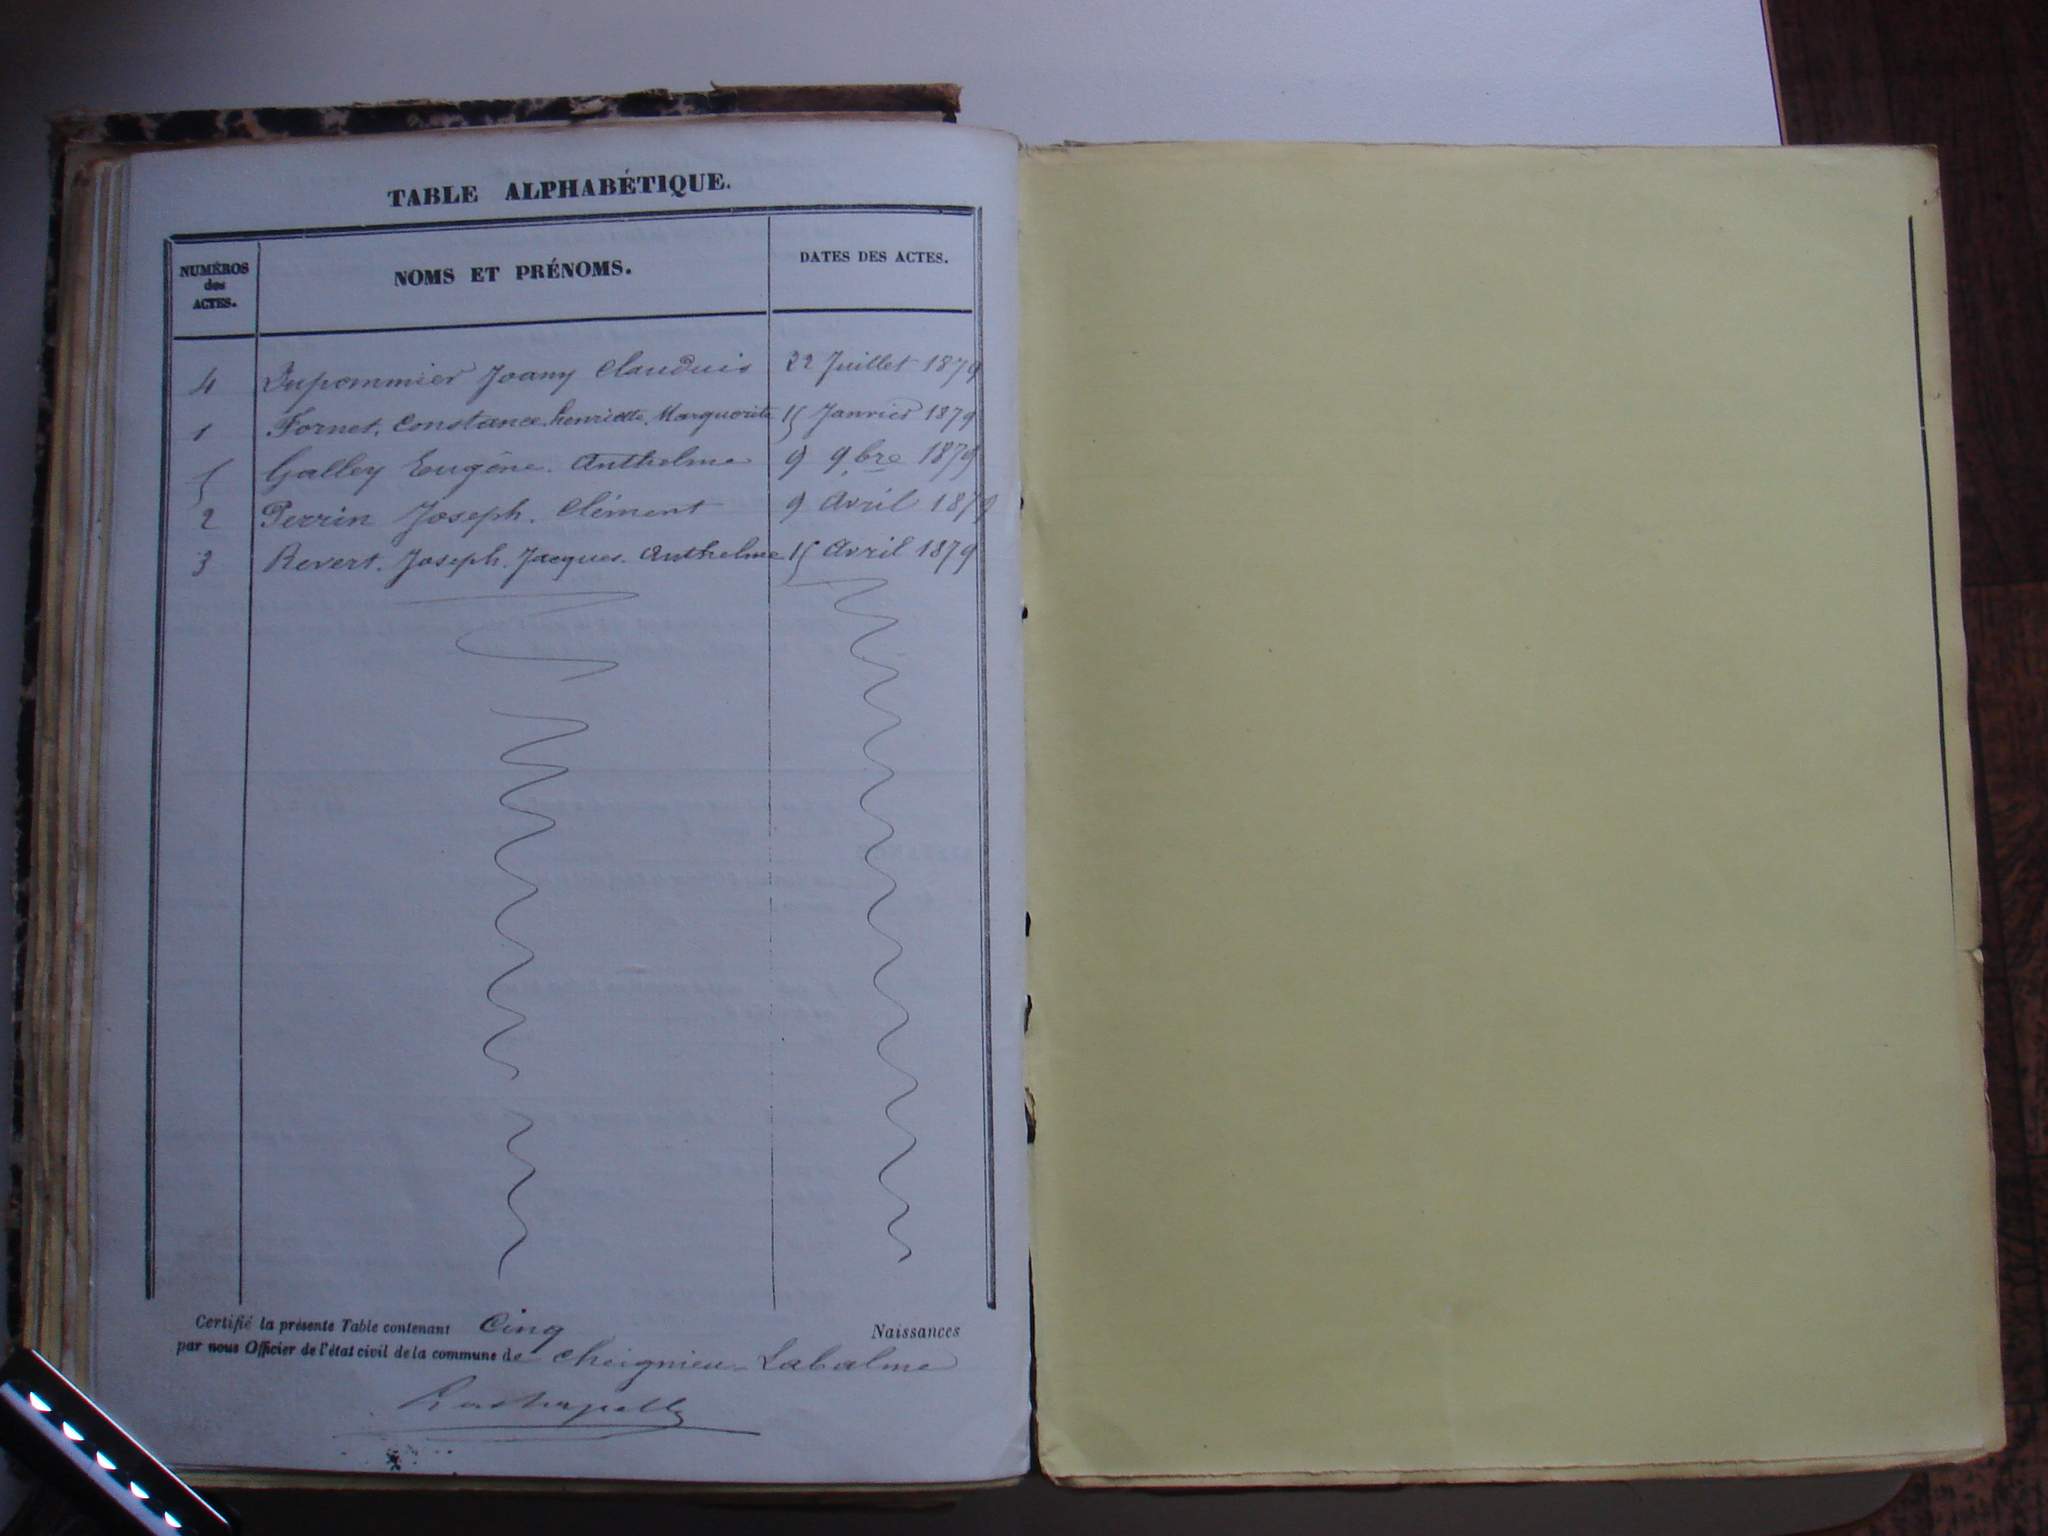 TABLE ALPHABÉTIQUE.
NUMÉROS
des
ACTES.
NOMS ET PRÉNOMS.
DATES DES ACTES.
4 Dupommier Joany Claudius 22 Juillet 1879
1 Fornet, Constance, henriette, Marguerite 15 Janvier 1879
5 Galley Eugène. Anthelme 9 9bre 1879
2 Perrin Joseph. Clément 9 Avril 1879
3 Revert. Joseph. Jacques. Anthelme 15 Avril 1879
Certifié la présente Table contenant Cinq Naissances
par nous Officier de l'état civil de la commune de Cheignieu-Labalme